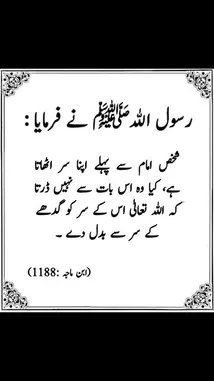 رسول اللہ ﷺ نے فرمایا :
شخص امام سے پہلے اپنا سر اٹھاتا
ہے، کیا وہ اس بات سے نہیں ڈرتا
کہ اللہ تعالیٰ اس کے سر کو گدھے
کے سر سے بدل دے ۔
(ابن ماجہ :1188)